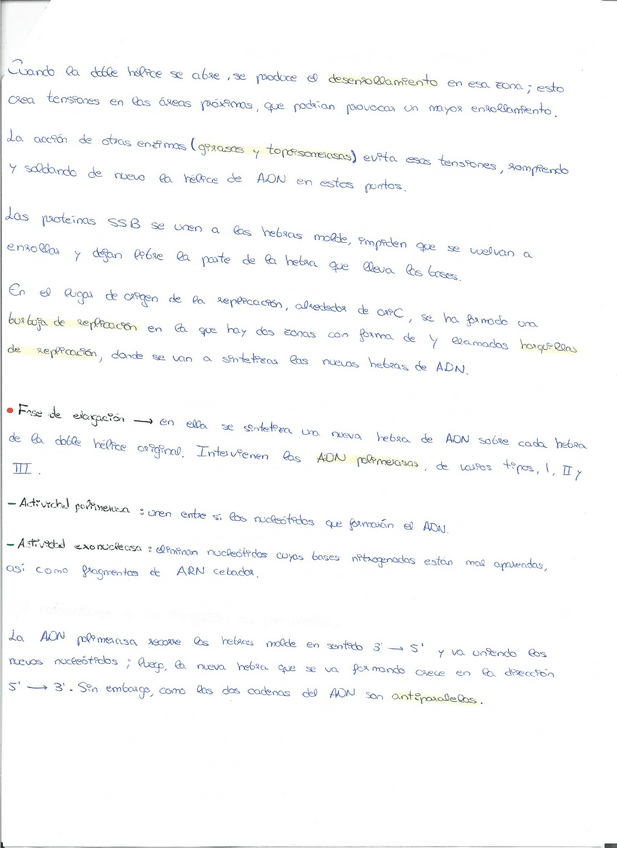 Cuando la doble hélice se abre, se produce el desenrollamiento en esa zona; esto
crea tensiones en las áreas próximas, que podrían provocar un mayor enrollamiento.
La acción de otras enzimas (girasas y topoisomerasas) evita esas tensiones, rompiendo
y soldando de nuevo la hélice de ADN en estos puntos.
Las proteínas SSB se unen a las hebras molde, impiden que se vuelvan a
enrollar y dejan libre la parte de la hebra que lleva las bases.
En el lugar de origen de la replicación, alrededor de oriC, se ha formado una
burbuja de replicación en la que hay dos zonas con forma de Y llamadas horquillas
de replicación, donde se van a sintetizar las nuevas hebras de ADN.
• Fase de elongación → en ella se sintetiza una nueva hebra de ADN sobre cada hebra
de la doble hélice original. Intervienen las ADN polimerasas, de varios tipos, I, II y
III.
- Actividad polimerasa: unen entre sí los nucleótidos que formarán el ADN.
- Actividad exonucleasa: eliminan nucleótidos cuyas bases nitrogenadas están mal apareadas,
así como fragmentos de ARN cebador.
La ADN polimerasa recorre las hebras molde en sentido 3' → 5' y va uniendo los
nuevos nucleótidos; luego, la nueva hebra que se va formando crece en la dirección
5' → 3'. Sin embargo, como las dos cadenas del ADN son antiparalelas.